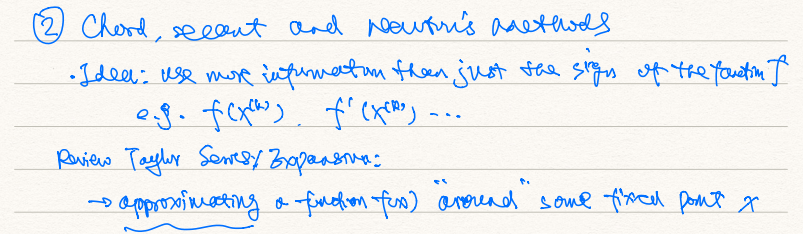 ② Chord, secant and Newton's methods
· Idea: use more information than just the signs of the function f
e.g. f(x^(k)), f'(x^(k)) ...
Review Taylor Series/Expansion:
→ approximating a function f(x) "around" some fixed point x